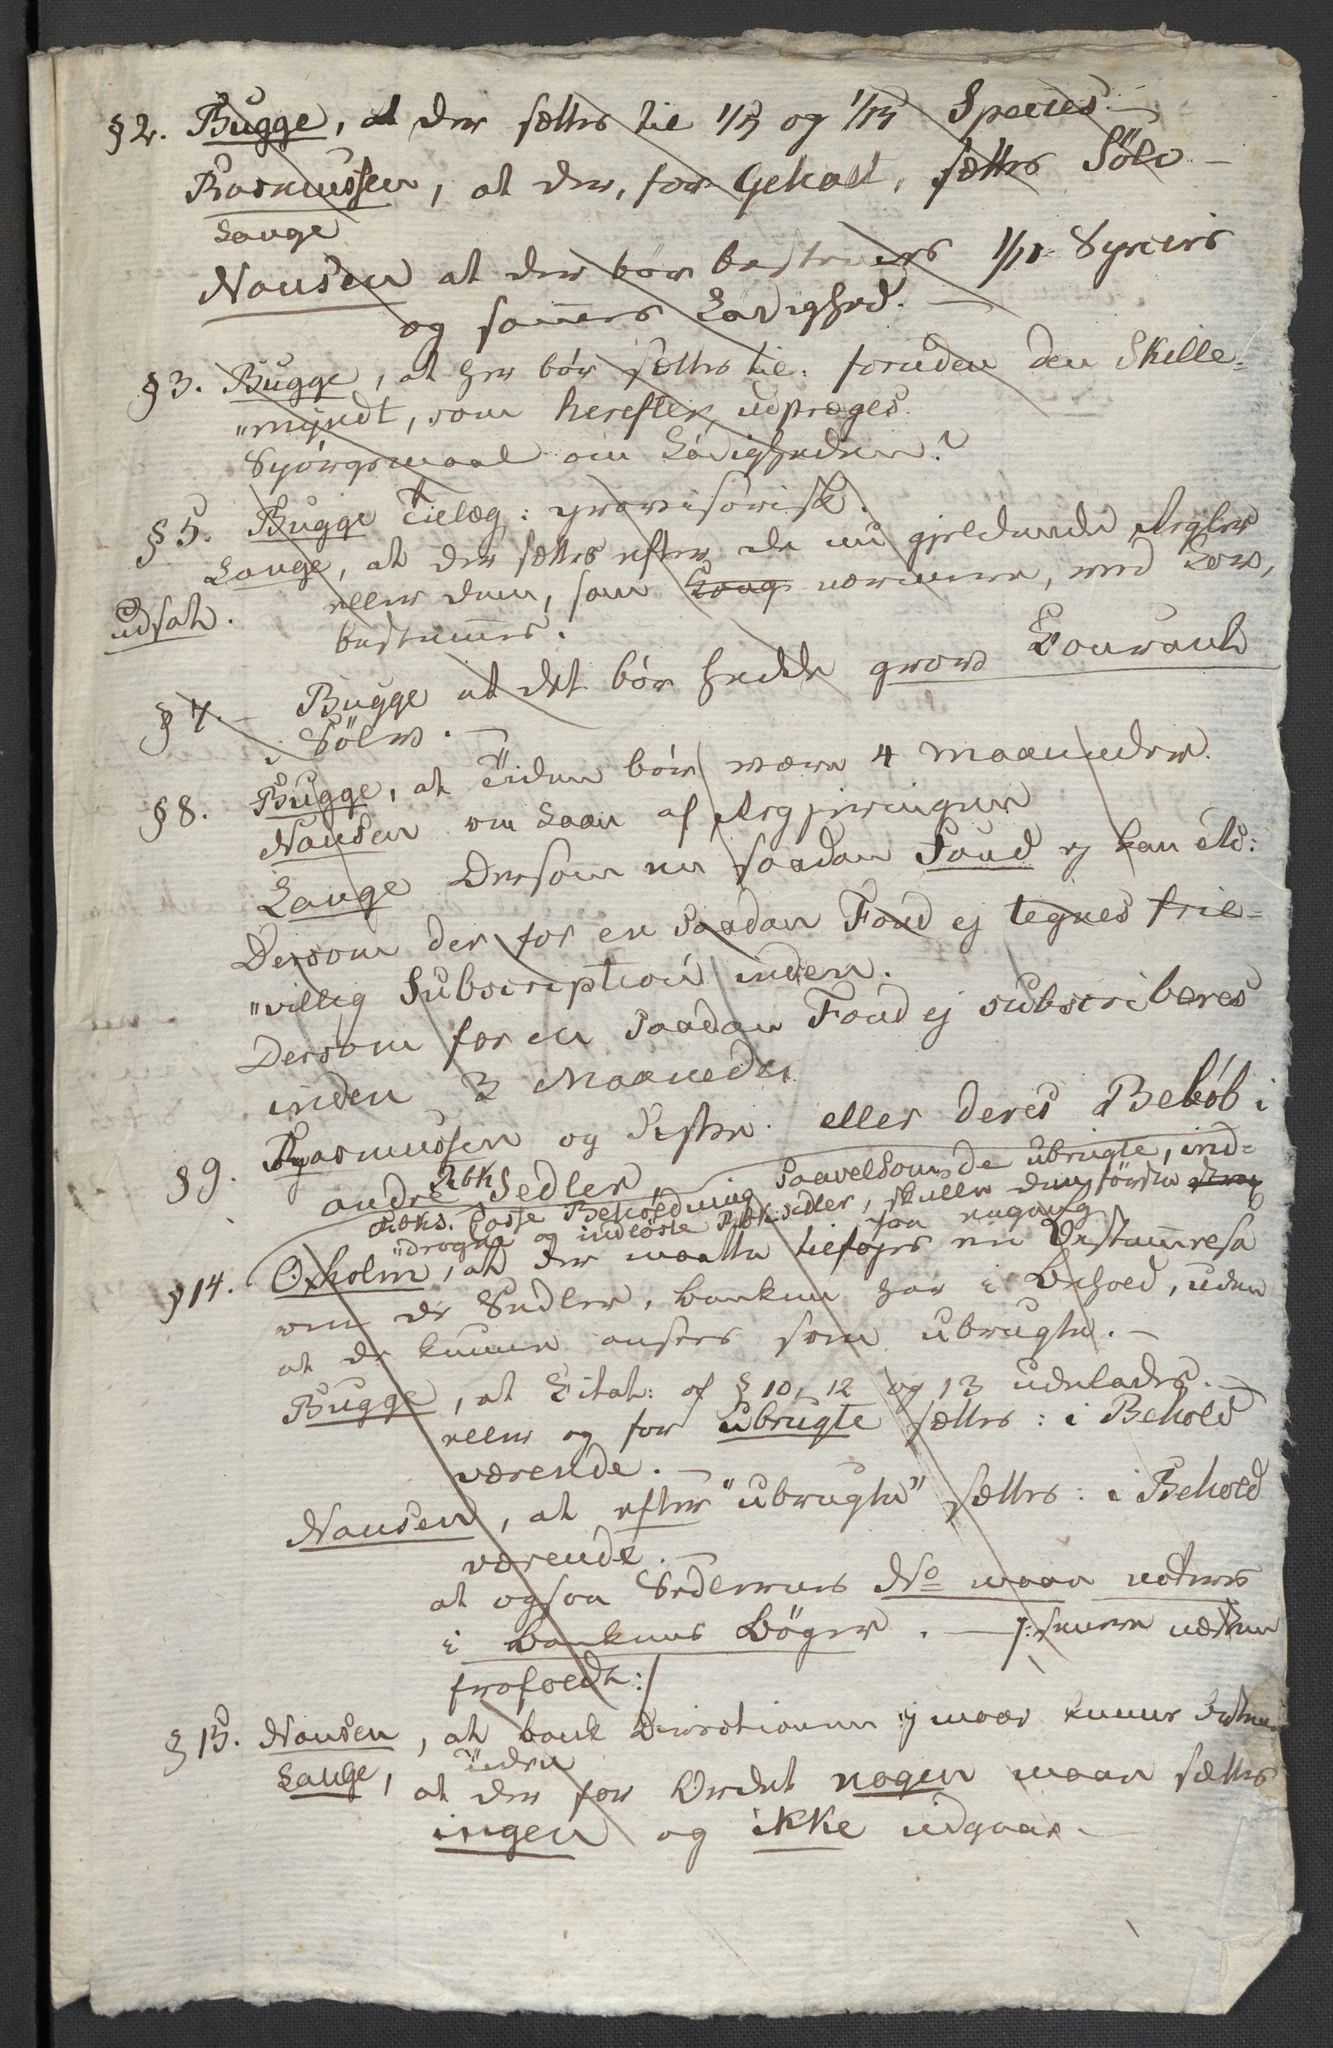 § 2. Bugge, at der sættes til 1/5 og 1/15 Species.—
Rasmussen, at der, for Gehalt, sættes Sölv —
Lange
Nansen at der bör bestemmes Species
og sammes Lödighed. —
§ 3. Bugge, at her bör sættes til: foruden den Skille=
"mÿndt, som herefter, udpræges.
Spörgsmaal om Lödigheden?
§ 5. Bugge Tillæg: provisorisk.
Lange, at der sættes efter de nu gjeldende Regler
eller dem, som nærmere, ved Lov,
udsat. bestemmes.
§ 7. — Bugge at det bör hedde grov Courant
i Sölv. —
§ 8. Bugge, at Tiden bör være 4 Maaneder.
Nansen om Laan af Regjeringen
Lange Dersom en saadan Fond ej kan etc:
Dersom der for en saadan Fond ej tegnes frie=
"villig Subscription inden.
Dersom for en saadan Fond ej subscriberes
inden 3 Maaneder
§ 9. Rasmussen og eller deres Belöb i
andre Rbk Sedler
Rbks. Casse Beholdning saavelsom de ubrugte, ind=
"dragne og indlöste Rbk. sedler, skulle den förste
paa engang
§ 14. Oxholm, at der maatte tilföjes en Bestemmelse
om de Sedler, Banken har i Behold, uden
at de kunne ansees som ubrugte. —
Bugge, at Citat: af § 10, 12 og 13 udelades. —
eller og for ubrugte sættes: i Behold
værende. —
Nansen, at efter "ubrugte" sættes: i Behold
værende. —
at ogsaa Sedlernes No maa noteres
i Bankens Böger. — /: senere næsten
frafaldt :/
§ 15. Nansen, at bank Directionen ej maae kunne
Tiden
Lange, at der for Ordet nogen maa sættes
ingen og ikke udgaae —